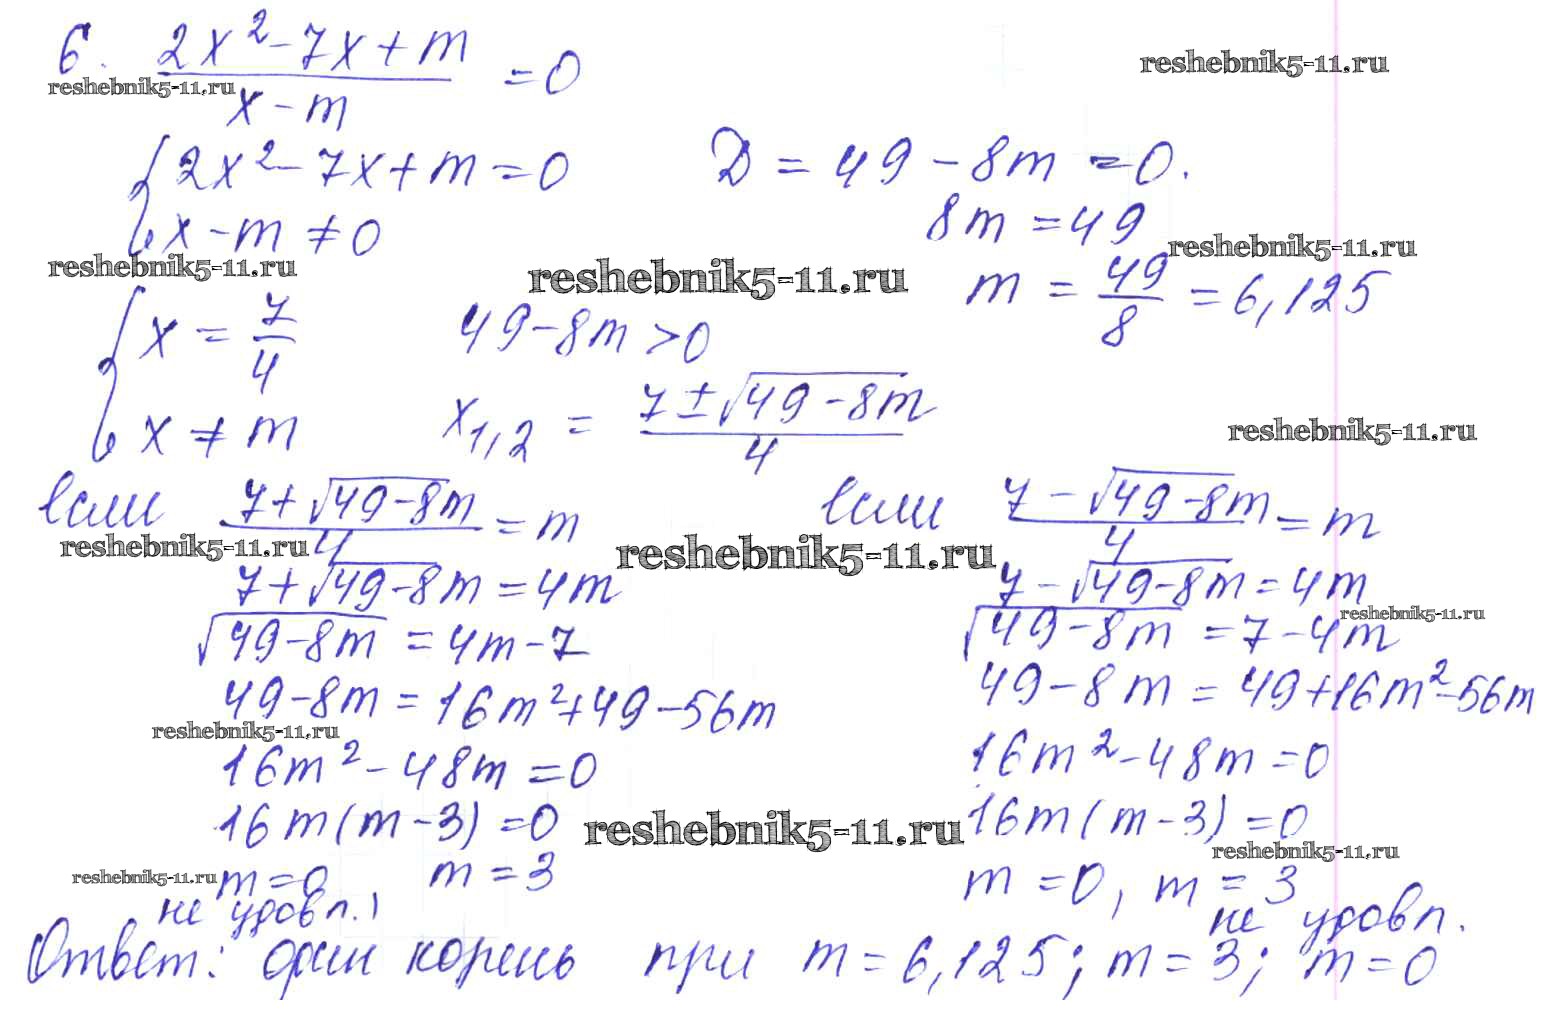 6. (2x² - 7x + m)/(x - m) = 0
reshebnik5-11.ru
reshebnik5-11.ru
{ 2x² - 7x + m = 0
x - m ≠ 0
D = 49 - 8m = 0.
8m = 49
m = 49/8 = 6,125
reshebnik5-11.ru
reshebnik5-11.ru
reshebnik5-11.ru
{ x = 7/4
x ≠ m
49 - 8m > 0
x1,2 = (7 ± √(49 - 8m))/4
reshebnik5-11.ru
если (7 + √(49 - 8m))/4 = m
reshebnik5-11.ru
7 + √(49 - 8m) = 4m
√(49 - 8m) = 4m - 7
49 - 8m = 16m² + 49 - 56m
reshebnik5-11.ru
16m² - 48m = 0
16m(m - 3) = 0
reshebnik5-11.ru
m = 0, m = 3
не удовл.,
reshebnik5-11.ru
reshebnik5-11.ru
если (7 - √(49 - 8m))/4 = m
7 - √(49 - 8m) = 4m
reshebnik5-11.ru
√(49 - 8m) = 7 - 4m
49 - 8m = 49 + 16m² - 56m
16m² - 48m = 0
16m(m - 3) = 0
reshebnik5-11.ru
m = 0, m = 3
не удовл.
Ответ: один корень при m = 6,125; m = 3; m = 0